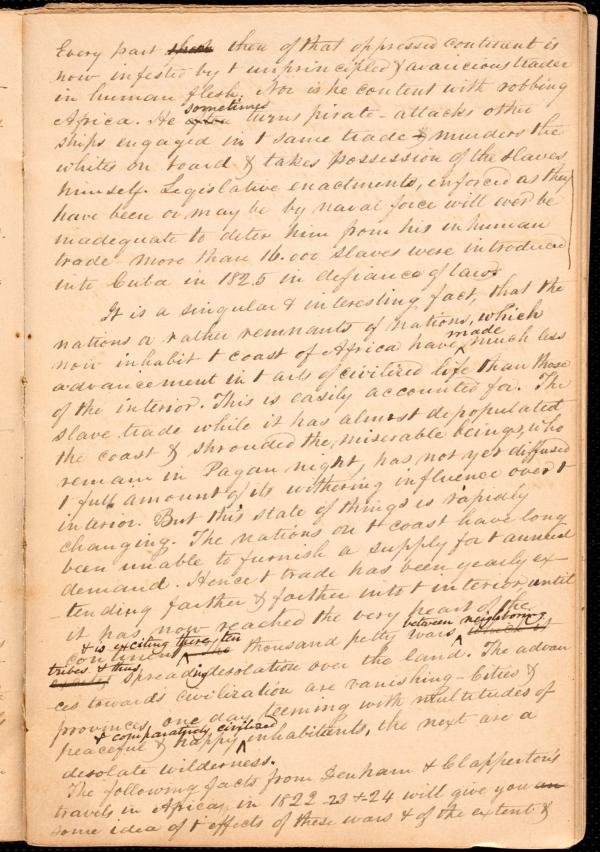 Every part then of that oppressed continent is
now infested by t unprincipled & avaricious trader
in human flesh. Nor is he content with robbing
sometimes
Africa. He often turns pirate - attacks other
ships engaged in t same trade & murders the
whites on board & takes possession of the slaves
himself. Legislative enactments, enforced as they
have been or may be by naval force will ever be
inadequate to deter him from his inhuman
trade more than 16.000 slaves were introduced
into Cuba in 1825 in defiance of laws
It is a singular & interesting fact, that the
nations or rather remnants of nations, which
made
now inhabit t coast of Africa have ^ much less
advancement in t arts of civilized life than those
of the interior. This is easily accounted for. The
slave trade while it has almost depopulated
the coast & shrouded the miserable beings, who
remain in Pagan night, has not yet diffused
t full amount of its withering influence over t
interior. But this state of things is rapidly
changing. The nations on t coast have long
been unable to furnish a supply for t annual
demand. Hence t trade has been yearly ex-
-tending farther & farther into t interior until
it has now reached the very heart of the
& is exciting there ten between neighboring
continent ^ the thousand petty wars ^
tribes & thus
spreading desolation over the land. The advan
ces towards civilization are vanishing - Cities &
provinces, one day teeming with multitudes of
& comparatively civilized
peaceful & happy ^ inhabitants, the next are a
desolate wilderness.
The following facts from Denham & Clapperton's
travels in Africa, in 1822-23 & 24 will give you an
some idea of t effects of these wars & of the extent &